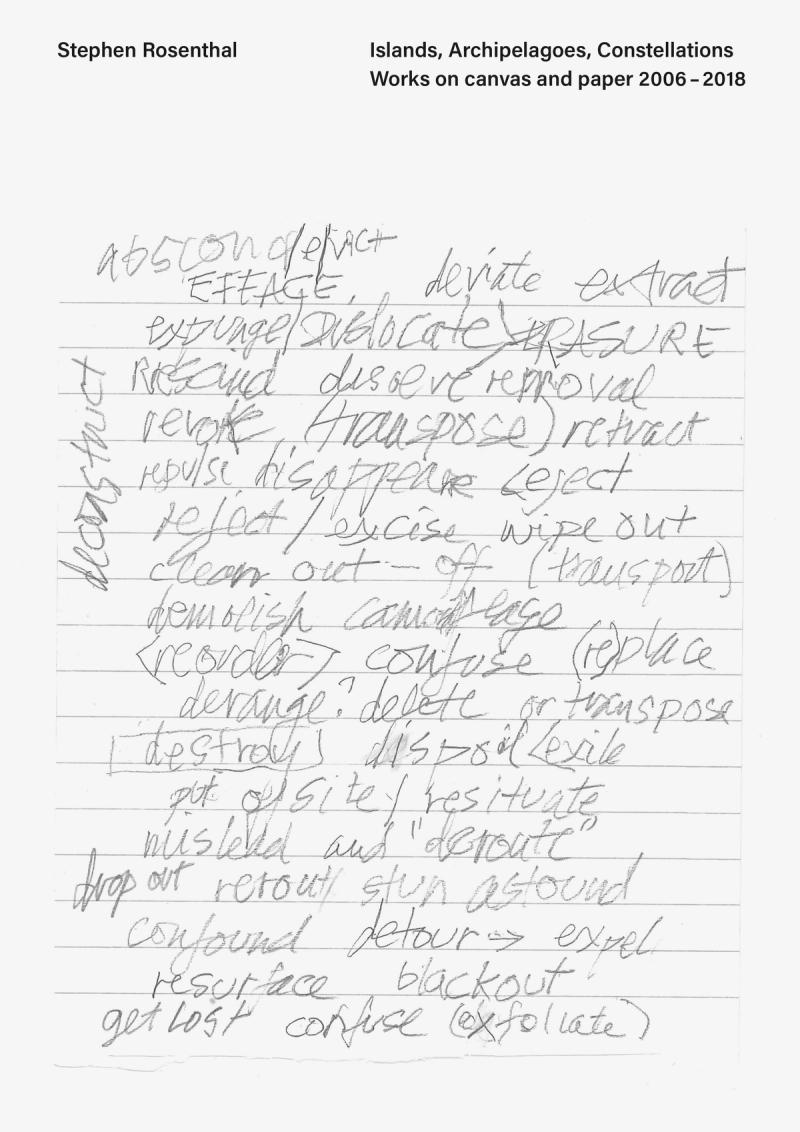 Stephen Rosenthal
Islands, Archipelagoes, Constellations
Works on canvas and paper 2006–2018
abscond/eject
EFFACE, deviate extract
expunge/Dislocate ERASURE
Rescind dissolve removal
revoke (transpose) retract
repulse disappear eject
reject/excise wipe out
clean out — off (transport)
demolish camouflage
<reorder> confuse (re)place
derange? delete or transpose
[destroy] dispoil/exile
put o/site/ resituate
mislead and "deroute"
drop out rerout/ stun astound
confound detour -> expel
resurface blackout
get Lost confuse (exfoliate)
deconstruct